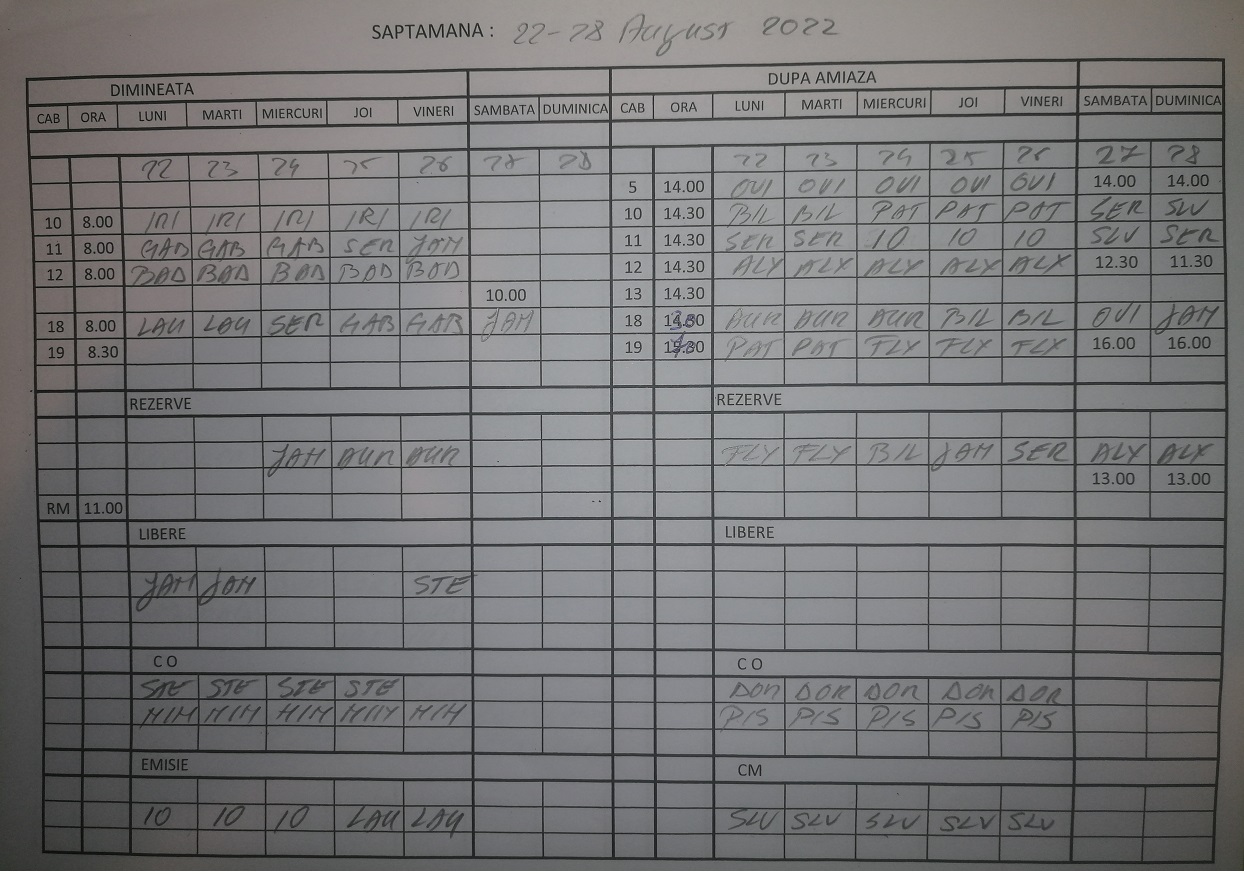 SAPTAMANA : 22-28 August 2022
DIMINEATA DUPA AMIAZA
CAB ORA LUNI MARTI MIERCURI JOI VINERI SAMBATA DUMINICA CAB ORA LUNI MARTI MIERCURI JOI VINERI SAMBATA DUMINICA
22 23 24 25 26 27 28 22 23 24 25 26 27 28
5 14.00 OVI OVI OVI OVI OVI 14.00 14.00
10 8.00 IRI IRI IRI IRI IRI 10 14.30 BIL BIL PAT PAT PAT SER SLV
11 8.00 GAB GAB GAB SER JAM 11 14.30 SER SER 10 10 10 SLV SER
12 8.00 BAD BAD BAD BAD BAD 12 14.30 ALX ALX ALX ALX ALX 12.30 11.30
10.00 13 14.30
18 8.00 LAU LAU SER GAB GAB JAM 18 AUR AUR AUR BIL BIL OVI JAM
19 8.30 19 PAT PAT FLY FLY FLY 16.00 16.00
REZERVE REZERVE
JAM AUR AUR FLY FLY BIL JAM SER ALX ALX
13.00 13.00
RM 11.00
LIBERE LIBERE
JAM JAM STE
C O C O
STE STE STE STE DOR DOR DOR DOR DOR
MIH MIH MIH MIH MIH PIS PIS PIS PIS PIS
EMISIE CM
10 10 10 LAU LAU SLV SLV SLV SLV SLV